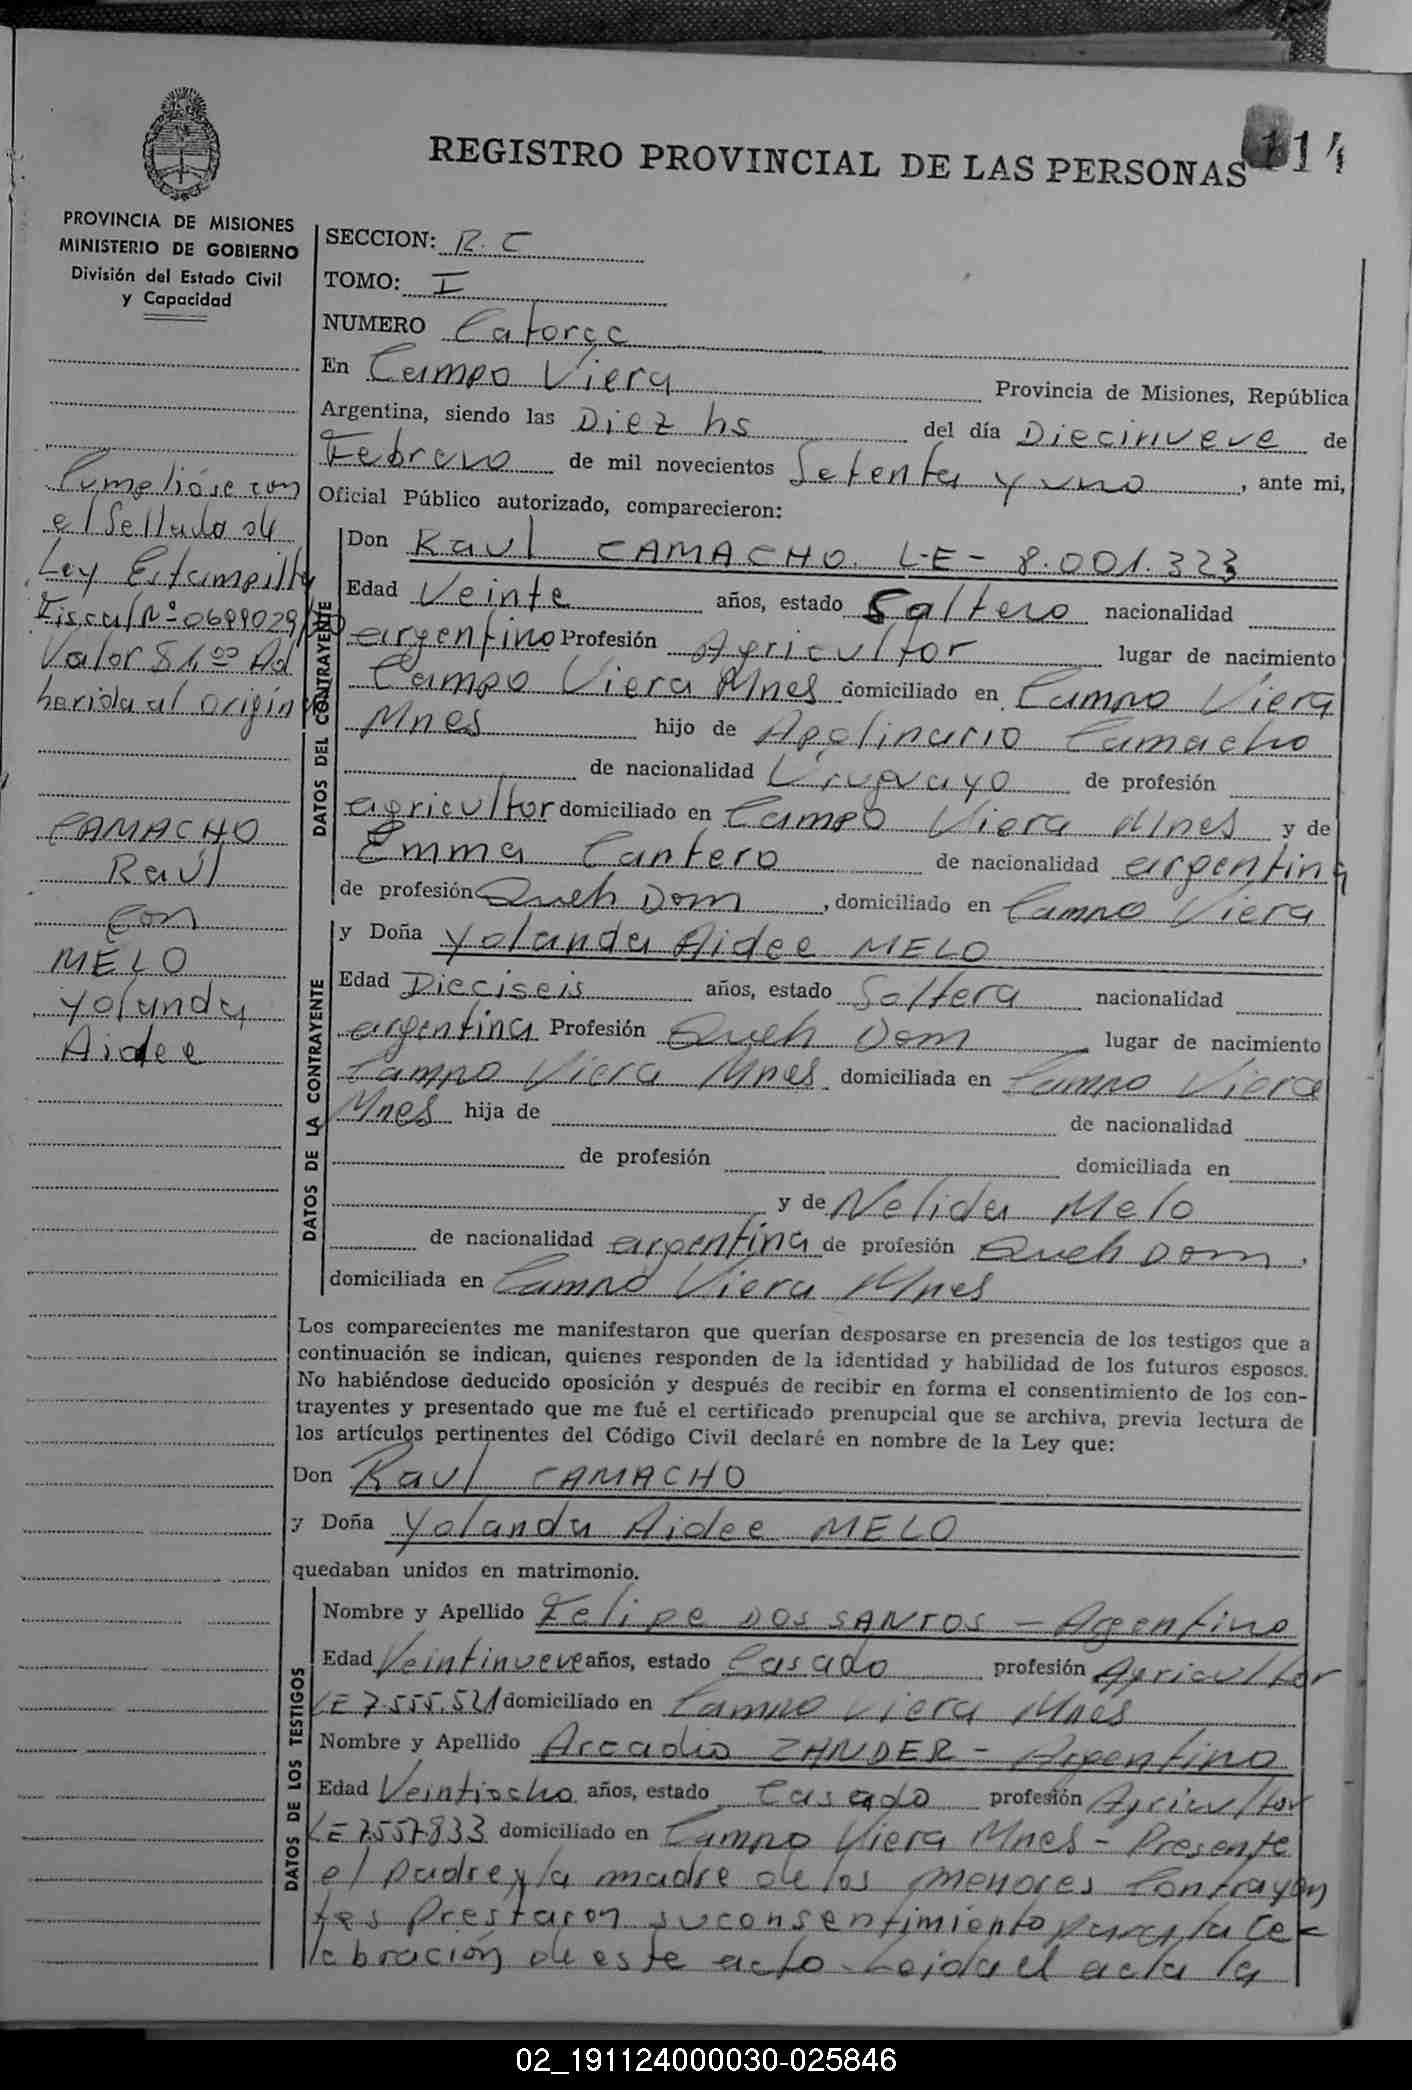 114
REGISTRO PROVINCIAL DE LAS PERSONAS
PROVINCIA DE MISIONES
MINISTERIO DE GOBIERNO
División del Estado Civil
y Capacidad
Cumplióse con
el Sellado de
Ley Estampilla
Fiscal Nº 0699029
Valor $ 1,00 Ad
herida al origin
CAMACHO
Raúl
Con
MELO
Yolanda
Aidee
SECCION: R. C
TOMO: I
NUMERO Catorce
En Campo Viera Provincia de Misiones, República
Argentina, siendo las Diez hs del día Diecinueve de
Febrero de mil novecientos Setenta y uno, ante mi,
Oficial Público autorizado, comparecieron:
DATOS DEL CONTRAYENTE
Don Raul CAMACHO. L-E- 8.001.323
Edad Veinte años, estado Soltero nacionalidad
argentino Profesión Agricultor lugar de nacimiento
Campo Viera Mnes domiciliado en Campo Viera
Mnes hijo de Apolinario Camacho
de nacionalidad Uruguayo de profesión
agricultor domiciliado en Campo Viera Mnes y de
Emma Cantero de nacionalidad argentina
de profesión Queh Dom, domiciliado en Campo Viera
DATOS DE LA CONTRAYENTE
y Doña Yolanda Aidee MELO
Edad Dieciseis años, estado Soltera nacionalidad
argentina Profesión Queh Dom lugar de nacimiento
Campo Viera Mnes domiciliada en Campo Viera
Mnes hija de de nacionalidad
de profesión domiciliada en
y de Nelida Melo
de nacionalidad argentina de profesión Queh Dom,
domiciliada en Campo Viera Mnes
Los comparecientes me manifestaron que querían desposarse en presencia de los testigos que a
continuación se indican, quienes responden de la identidad y habilidad de los futuros esposos.
No habiéndose deducido oposición y después de recibir en forma el consentimiento de los con-
trayentes y presentado que me fué el certificado prenupcial que se archiva, previa lectura de
los artículos pertinentes del Código Civil declaré en nombre de la Ley que:
Don Raul CAMACHO
y Doña Yolanda Aidee MELO
quedaban unidos en matrimonio.
DATOS DE LOS TESTIGOS
Nombre y Apellido Felipe DOS SANTOS - Argentino
Edad Veintinueve años, estado Casado profesión Agricultor
LE 7.555.521 domiciliado en Campo Viera Mnes
Nombre y Apellido Arcadio ZANDER - Argentino
Edad Veintiocho años, estado Casado profesión Agricultor
LE 7557833 domiciliado en Campo Viera Mnes - Presente
el padre y la madre de los menores Contrayen
tes prestaron su consentimiento para la Ce-
lebración de este acto. Leida el acta la
02_191124000030-025846